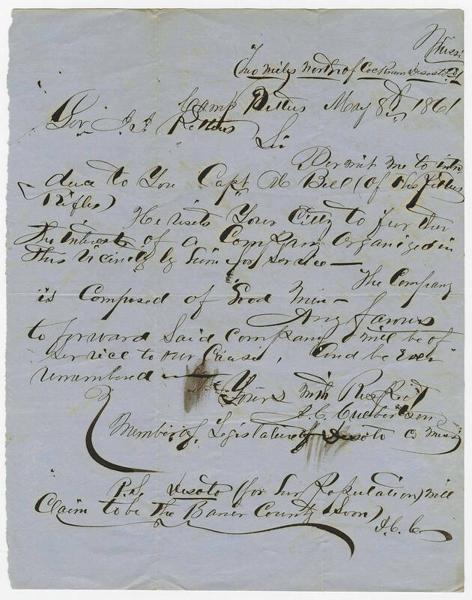 Missi
Two miles north of Cockrum Desoto Co
Camp Pettus May 8th 1861
Gov. J. J. Pettus
Sir
Permit me to intro
duce to You Capt Bell (of the Pettus
Rifles)
He visits Your City to further
the Interests of a Company Organized in
this Vicinity by him for service —
The Company
is Composed of Good Men —
Any favors
to forward Said Company will be of
service to our Cause, and be Ever
remembered —
Yours with Respect
J. C.
Member of Legislature of Desoto Co Missi
P.S. Desoto (for her Population) will
Claim to be The Baner County (soon)
J. C. C.